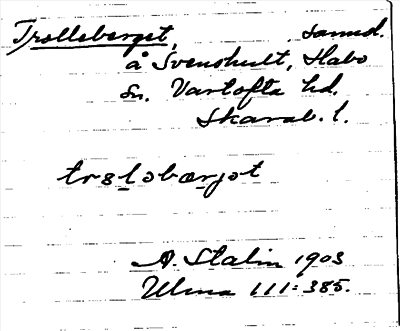 Trolleberget, samd.
å Svenshult, Habo
sn. Vartofta hd.
Skarab. l.
trɷləbærjət
A. Stalin 1903
Ulma 111:385.